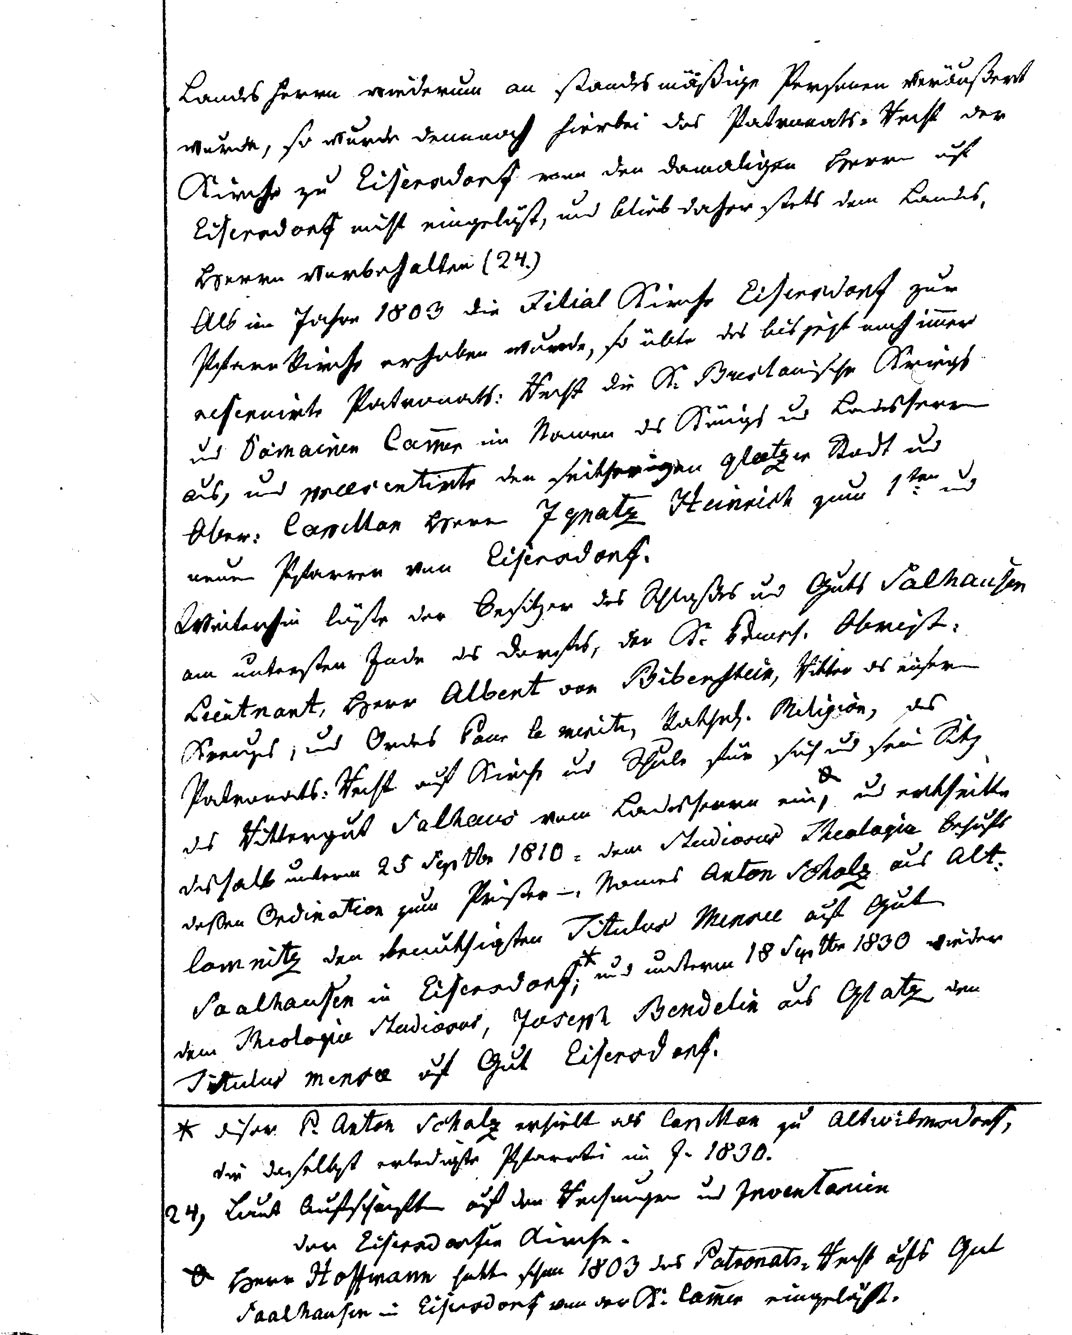 Landes Herrn wiederum an standesmäßige Personen veräußert
wurde, so wurde dennoch hierbei das Patronats-Recht der
Kirche zu Eisersdorf von den damaligen Herrn auf
Eisersdorf nicht eingelößt, und blieb daher stets dem Landes,
Herrn vorbehalten (24.)
Als im Jahre 1803 die Filial Kirche Eisersdorf zur
Pfarr Kirche erhoben wurde, so übte das bis jezt noch immer
reservirte Patronats: Recht die K. Breslauische Kriegs
und Domainen Cam̄er im Namen des Königs und Landesherrn
aus, und praesentirte den seitherigen glatzer Stadt und
Ober: Caplan Herrn Ignatz Heinrich zum 1ten und
neuen Pfarrer von Eisersdorf.
Weiterhin lößte der Besitzer des Schloßes und Guts Salhausen
am untersten Ende des Dorfes, der K. Preuß. Obrist:
Lieutnant, Herr Albert von Bibenstein, Ritter des eisern
Kreuzes, und Ordes Pour le merite, kathol. Religion, das
Patronats: Recht auf Kirche und Schule für sich und sein Sitz
das Rittergut Salhaus vom Landesherrn ein, und ertheilte
deshalb unterm 25 Septbr 1810 = dem Studiosus Theologia behufs
deßen Ordination zum Prister –, Names Anton Scholz aus Alt:
lomnitz den benöthigten Titulus Mensae auf Gut
Saalhausen in Eisersdorf;* und unterm 18 Septbr 1830 wieder
dem Theologia Studiosus, Joseph Bendelin aus Glatz den
Titulus mensae auf Gut Eisersdorf.
* dieser P. Anton Scholz erhielt als Caplan zu Altwilmsdorf,
die daselbst erledigte Pfarrtei im J. 1830.
24, Laut Aufschriften auf den Rechnungen und Inventarien
der Eisersdorfer Kirche.
Herr Hoffmann hatte schon 1803 das Patronats-Recht aufs Gut
Saalhausen in Eisersdorf von der K. Cam̄er eingelößt.